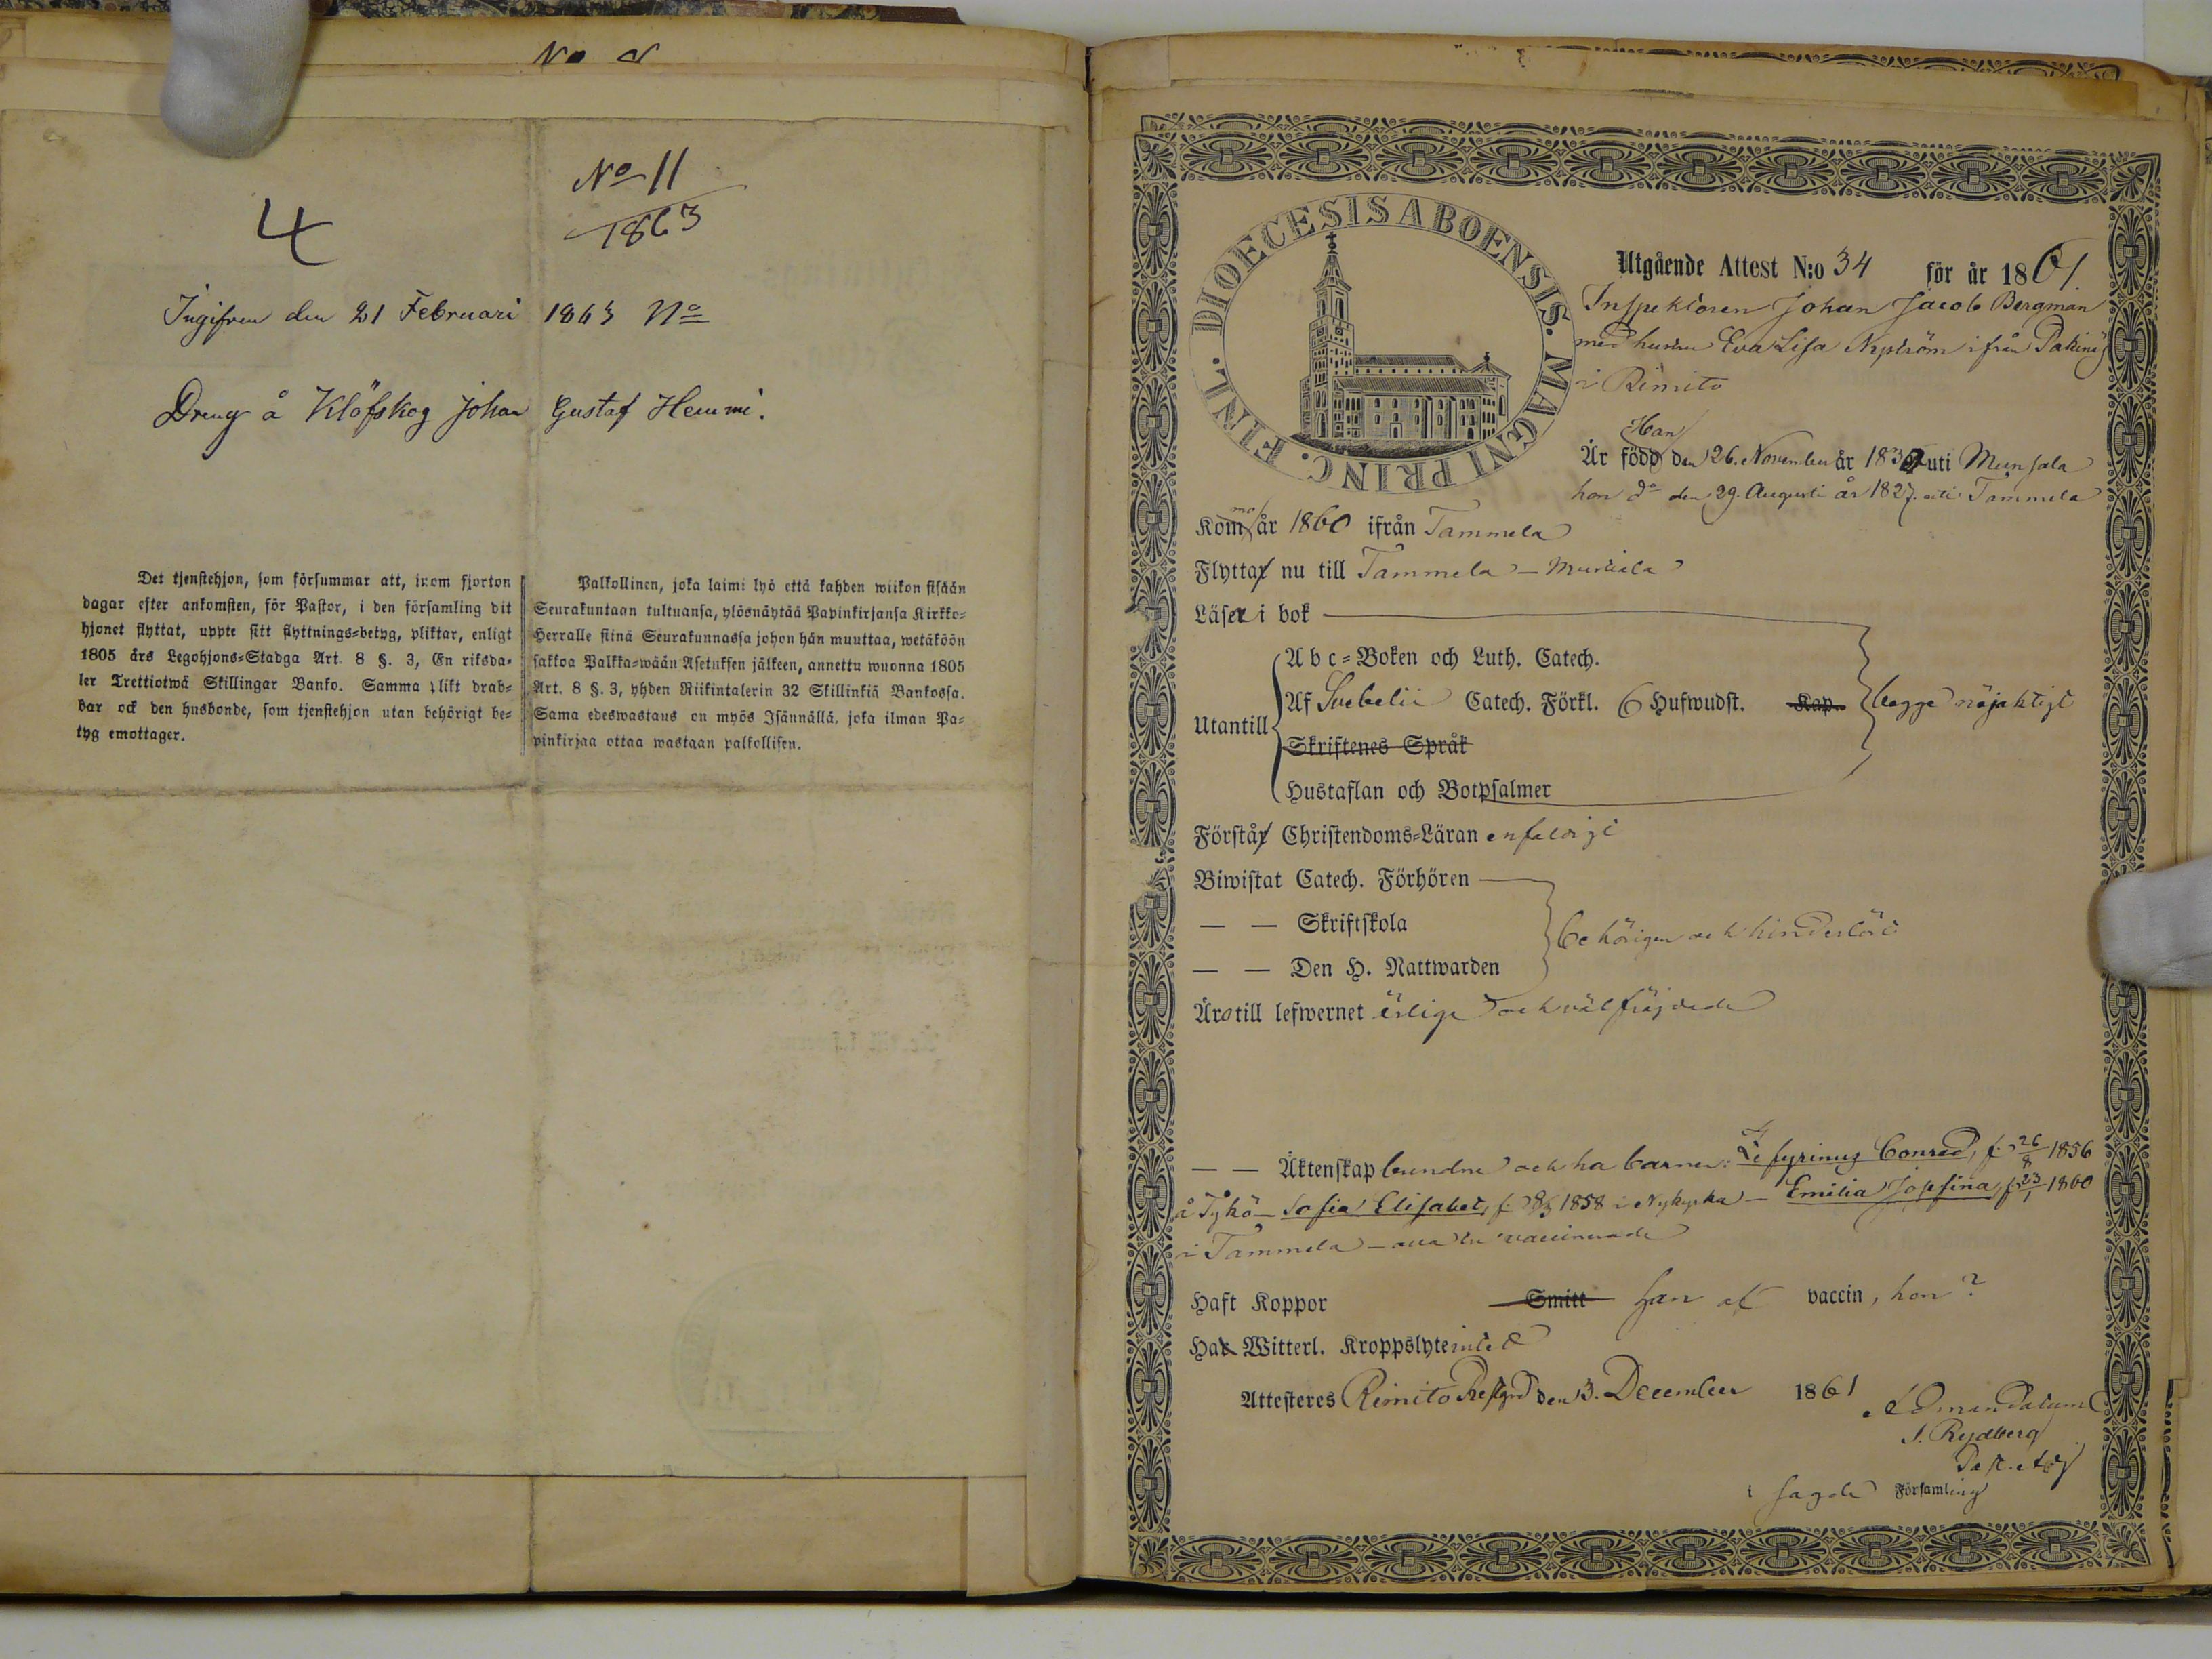 No
4
No 11
1863
Ingifven den 21 Februari 1863 No
Dreng å Klöfskog Johan Gustaf Hemmi.
Det tjenstehjon, som försummar att, inom fjorton
dagar efter ankomsten, för Pastor, i den församling dit
hjonet flyttat, uppte sitt flyttnings=betyg, pliktar, enligt
1805 års Legohjons=Stadga Art. 8 §. 3, En riksda=
ler Trettiotwå Skillingar Banko. Samma plikt drab=
bar ock den husbonde, som tjenstehjon utan behörigt be=
tyg emottager.
Palkollinen, joka laimi lyö että kahden wiikon sisään
Seurakuntaan tultuansa, ylösnäytää Papinkirjansa Kirkko=
Herralle siinä Seurakunnassa johon hän muuttaa, wetäköön
sakkoa Palkka=wään Asetuksen jälkeen, annettu wuonna 1805
Art. 8 §. 3, yhden Riikintalerin 32 Skillinkiä Bankossa.
Sama edeswastaus on myös Isännällä, joka ilman Pa=
pinkirjaa ottaa wastaan palkollisen.
DIOECESIS ABOENSIS. MAGNI PRINC. FINL.
Utgående Attest N:o 34 för år 1861
Inspektoren Johan Jacob Bergman
med hustru Eva Lisa Nyström ifrån Pakinis
i Rimito
Han
Är född den 26. November år 1832 uti Munsala
hon do den 29. Augusti år 1827. uti Tammela
Kommo år 1860 ifrån Tammela
Flytta nu till Tammela - Mustiala
Läser i bok
A b c=Boken och Luth. Catech.
Utantill Af Svebelii Catech. Förkl. 6 Hufwudst. Kap. begge nöjaktigt
Skriftenes Språk
Hustaflan och Botpsalmer
Förstå Christendoms=Läran enfaldigt
Biwistat Catech. Förhören
— — Skriftskola behörigen och hinderlöst
— — Den H. Nattwarden
Äro till lefwernet ärliga och välfräjdade
— — Äktenskap bundne och ha barnen: Zefyrinus Conrad, f. 26/8 1856
å Tykö - Sofia Elisabet, f. 8/3 1858 i Nykyrka - Emilia Josefina, f. 23/1 1860
i Tammela - vaccinerade
Haft Koppor Smitt han af vaccin, hon?
Ha Witterl. Kroppslyte intet
Attesteres Rimito Prestgrd den 3. December 1861
Ad mandatum
J. Rydberg
Past. Adj
i sagde Församling